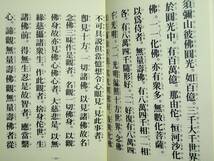 須彌山彼佛圓光如百億三千大千世界
於圓光中有百萬億那由他恆河沙化
佛一一化佛亦有眾多無數化菩薩
以為侍者無量壽佛有八萬四千相
各有八萬四千隨形好
有八萬四千光明
不可具說但當憶想令心眼見見此事者
即見十方一切諸佛以見諸佛故名
念佛三昧作是觀者名觀一切佛身以觀
佛身故亦見佛心佛心者大慈悲是以無
緣慈攝諸眾生作此觀者捨身他世生
諸佛前得無生忍是故智者應當繫
心諦觀無量壽佛觀無量壽佛者